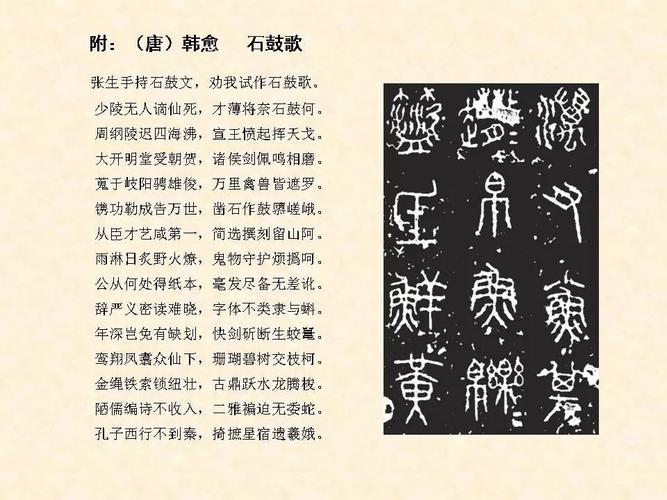 附：（唐）韩愈 石鼓歌
张生手持石鼓文，劝我试作石鼓歌。
少陵无人谪仙死，才薄将奈石鼓何。
周纲陵迟四海沸，宣王愤起挥天戈。
大开明堂受朝贺，诸侯剑佩鸣相磨。
蒐于岐阳骋雄俊，万里禽兽皆遮罗。
镌功勒成告万世，凿石作鼓隳嵯峨。
从臣才艺咸第一，简选撰刻留山阿。
雨淋日炙野火燎，鬼物守护烦撝呵。
公从何处得纸本，毫发尽备无差讹。
辞严义密读难晓，字体不类隶与蝌。
年深岂免有缺划，快剑斫断生蛟鼍。
鸾翔凤翥众仙下，珊瑚碧树交枝柯。
金绳铁索锁纽壮，古鼎跃水龙腾梭。
陋儒编诗不收入，二雅褊迫无委蛇。
孔子西行不到秦，掎摭星宿遗羲娥。
又其
帛魚
氐鮮黃